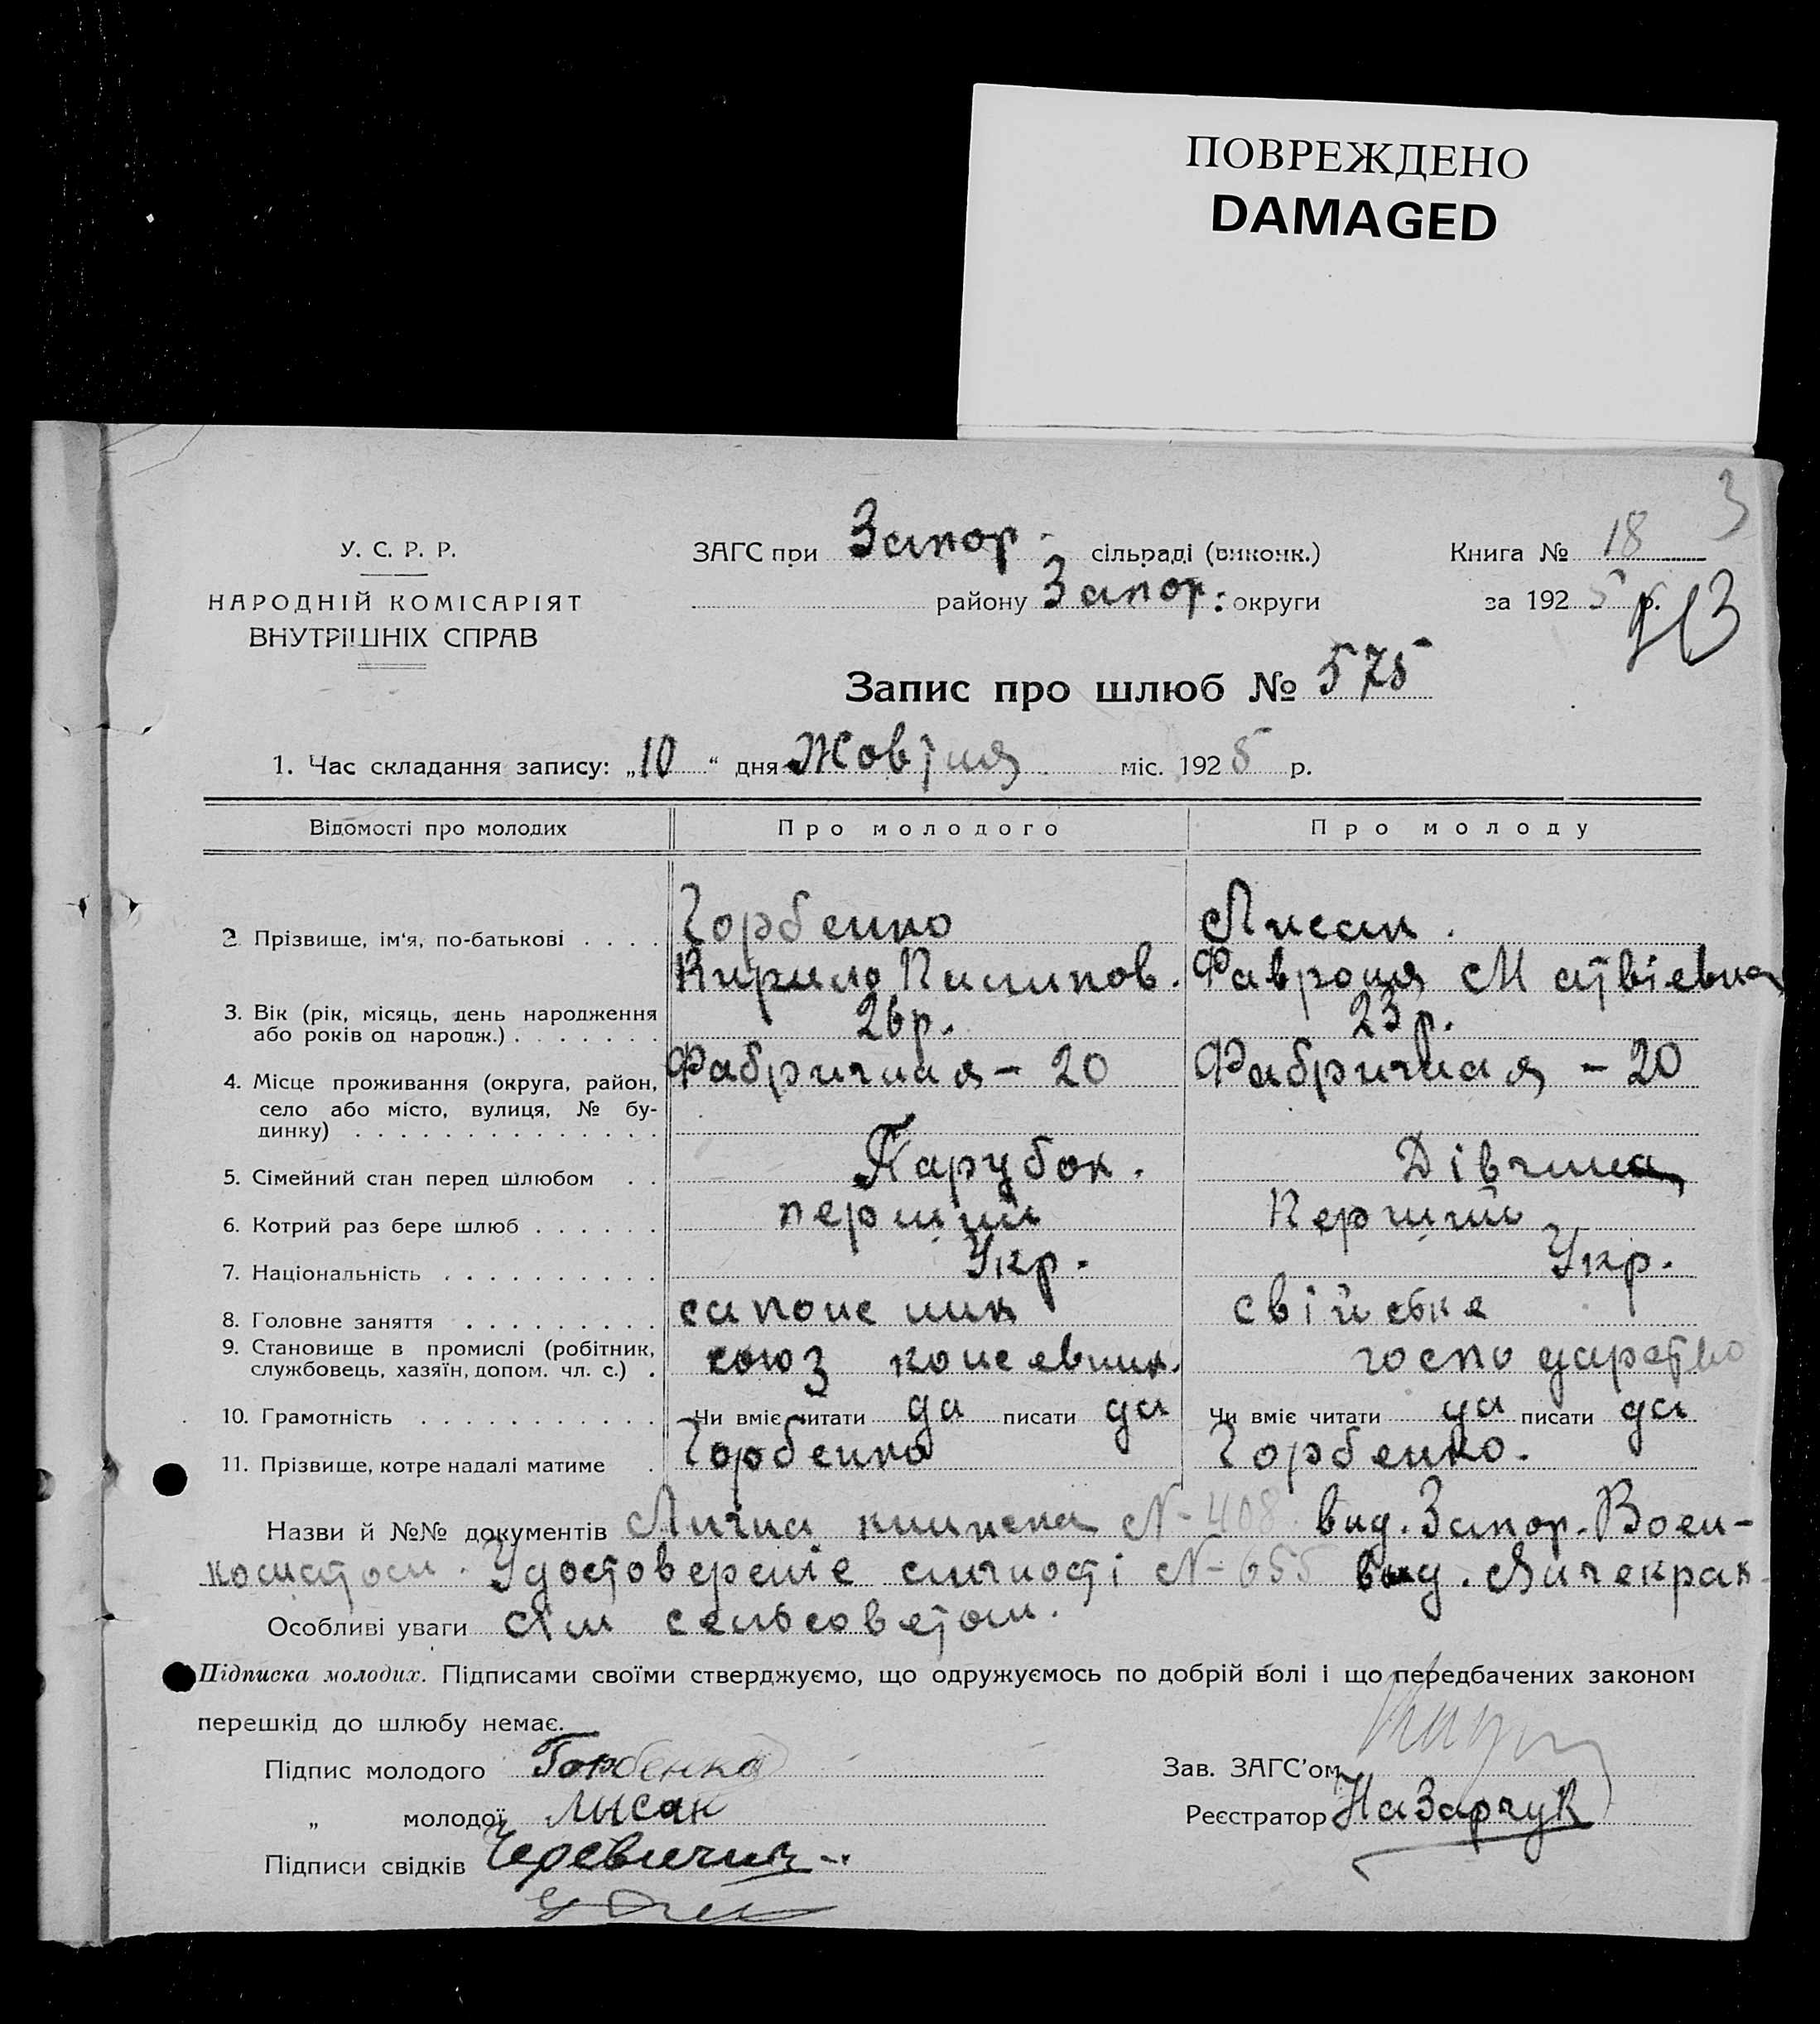 ПОВРЕЖДЕНО
DAMAGED
3
У. С. Р. Р.
НАРОДНІЙ КОМІСАРІЯТ
ВНУТРІШНІХ СПРАВ
ЗАГС при Запор. сільраді (виконк.)
району Запор. округи
Книга № 18
за 1925 р.
Запис про шлюб № 575
1. Час складання запису: „10“ дня Жовтня міс. 1925 р.
Відомості про молодих Про молодого Про молоду
2 Прізвище, ім'я, по-батькові . . . . Горбенко Лисак.
Кирило Пилипов. Фавронія Матвієвна
3. Вік (рік, місяць, день народження
або років од народж.) . . . . . . . 26р. 23р.
4. Місце проживання (округа, район, Фабричная – 20 Фабричная – 20
село або місто, вулиця, № бу-
динку) . . . . . . . . . . . . . .
5. Сімейний стан перед шлюбом . . Парубок. Дівчина
6. Котрий раз бере шлюб . . . . . . перший Перший
7. Національність . . . . . . . . . . Укр. Укр.
8. Головне заняття . . . . . . . . . сапожник свійське
9. Становище в промислі (робітник,
службовець, хазяїн, допом. чл. с.) . союз кожевник. господарство
10. Грамотність . . . . . . . . . . . Чи вміє читати да писати да Чи вміє читати да писати да
11. Прізвище, котре надалі матиме . Горбенко Горбенко.
Назви й №№ документів Лична книжка N-408 вид. Запор. Воен-
коматом. Удостовереніе личності N-655 выд.
Особливі уваги сельсоветом.
Підписка молодих. Підписами своїми стверджуємо, що одружуємось по добрій волі і що передбачених законом
перешкід до шлюбу немає.
Підпис молодого Горбенко
„ молодої Лысак
Підписи свідків
Зав. ЗАГС'ом
Реєстратор Назарчук